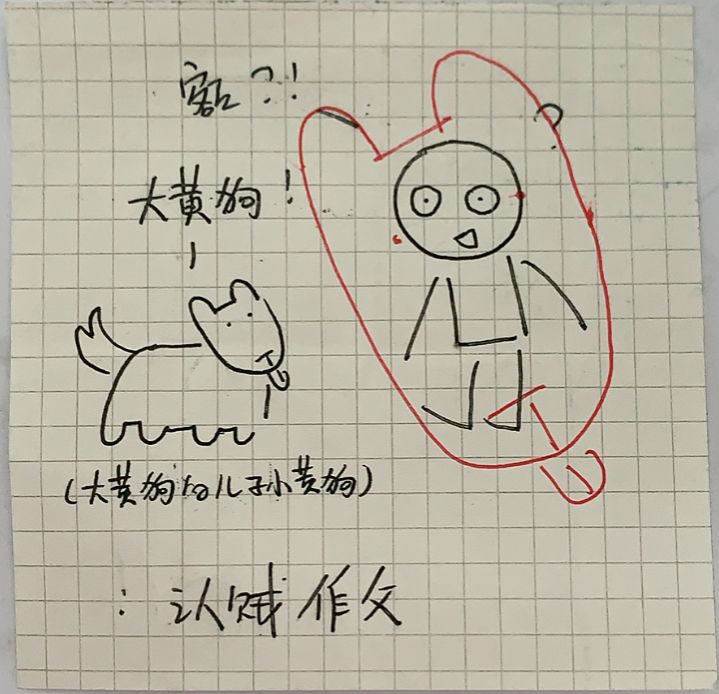 ?!
大黄狗!
(大黄狗的儿子小黄狗)
: 认贼作父